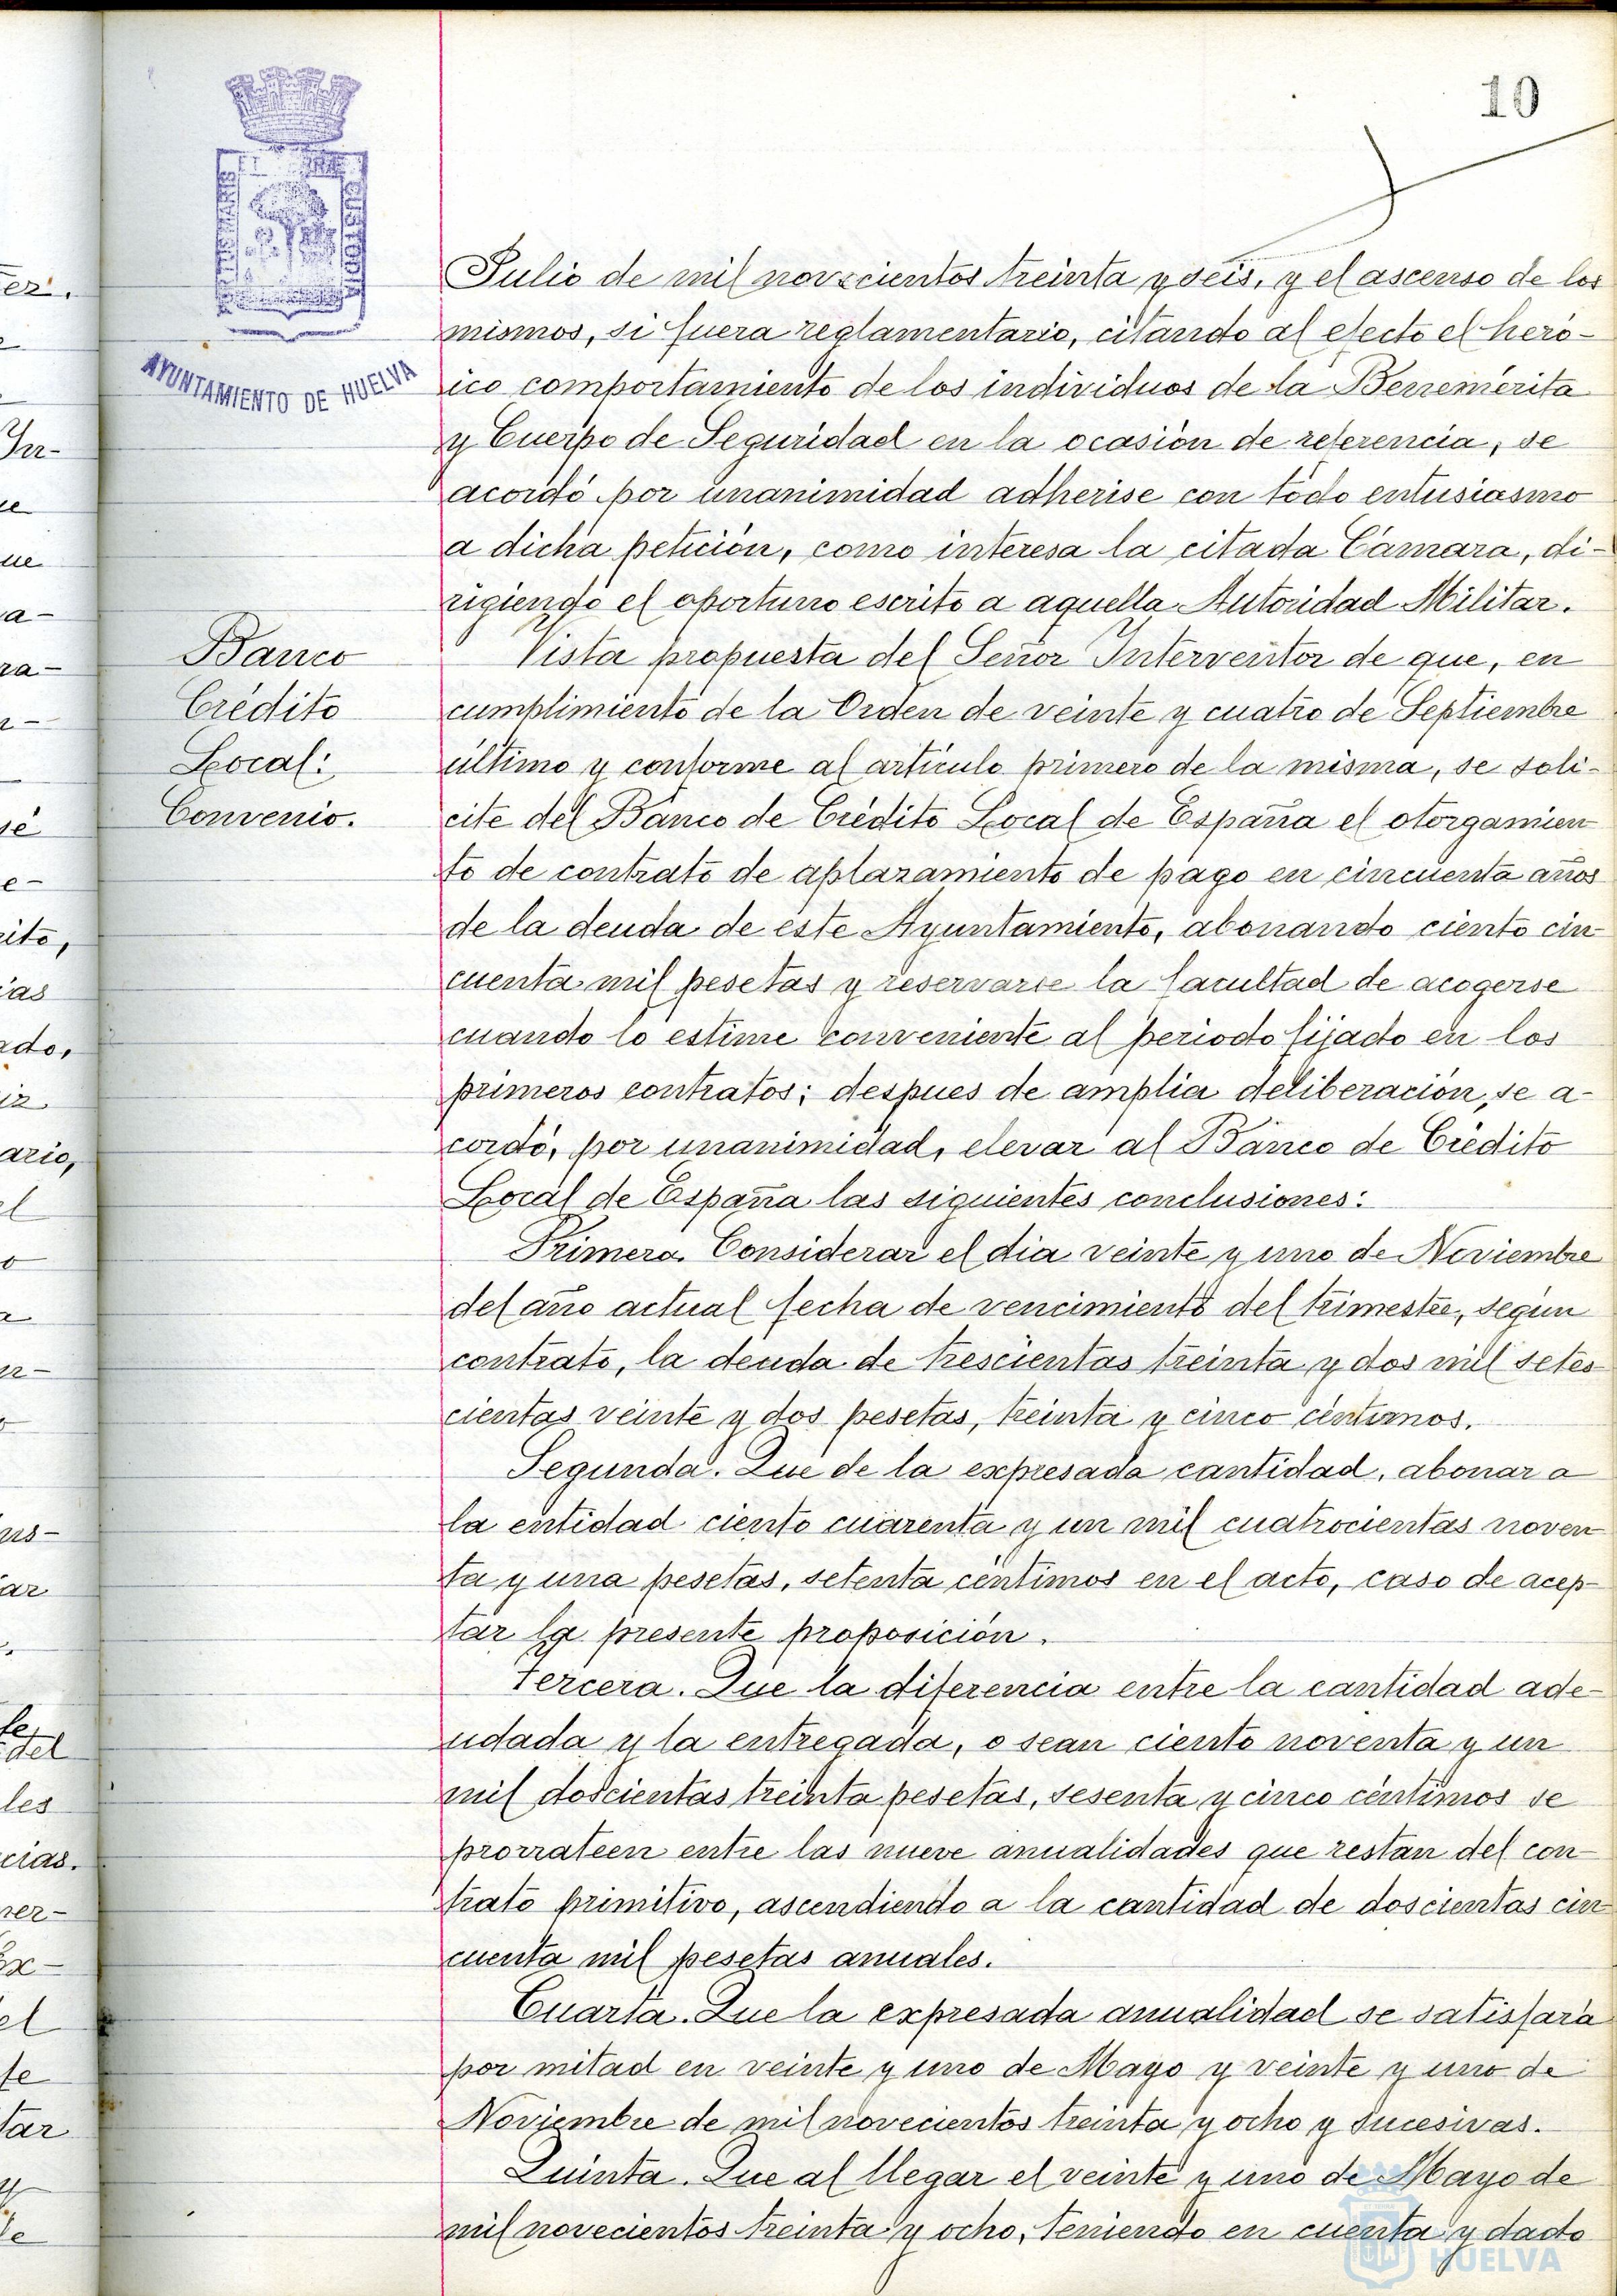 10
AYUNTAMIENTO DE HUELVA
Julio de mil novecientos treinta y seis, y el ascenso de los
mismos, si fuera reglamentario, citando al efecto el hero-
ico comportamiento de los individuos de la Benemérita
y Cuerpo de Seguridad en la ocasión de referencia, se
acordó por unanimidad adherise con todo entusiasmo
a dicha petición, como interesa la citada Cámara, di-
rigiendo el oportuno escrito a aquella Autoridad Militar.
Banco
Crédito
Local:
Convenio.
Vista propuesta del Señor Interventor de que, en
cumplimiento de la Orden de veinte y cuatro de Septiembre
último y conforme al artículo primero de la misma, se soli-
cite del Banco de Crédito Local de España el otorgamien
to de contrato de aplazamiento de pago en cincuenta años
de la deuda de este Ayuntamiento, abonando ciento cin-
cuenta mil pesetas y reservarse la facultad de acogerse
cuando lo estime conveniente al periodo fijado en los
primeros contratos; despues de amplia deliberación, se a-
cordó, por unanimidad, elevar al Banco de Crédito
Local de España las siguientes conclusiones:
Primera. Considerar el dia veinte y uno de Noviembre
del año actual fecha de vencimiento del trimestre, según
contrato, la deuda de trescientas treinta y dos mil setes
cientas veinte y dos pesetas, treinta y cinco céntimos.
Segunda. Que de la expresada cantidad, abonar a
la entidad ciento cuarenta y un mil cuatrocientas noven
ta y una pesetas, setenta céntimos en el acto, caso de acep-
tar la presente proposición.
Tercera. Que la diferencia entre la cantidad ade-
udada y la entregada, o sean ciento noventa y un
mil doscientas treinta pesetas, sesenta y cinco céntimos se
prorrateen entre las nueve anualidades que restan del con-
trato primitivo, ascendiendo a la cantidad de doscientas cin
cuenta mil pesetas anuales.
Cuarta. Que la expresada anualidad se satisfará
por mitad en veinte y uno de Mayo y veinte y uno de
Noviembre de mil novecientos treinta y ocho y sucesivas.
Quinta. Que al llegar el veinte y uno de Mayo de
mil novecientos treinta y ocho, teniendo en cuenta y dado
HUELVA